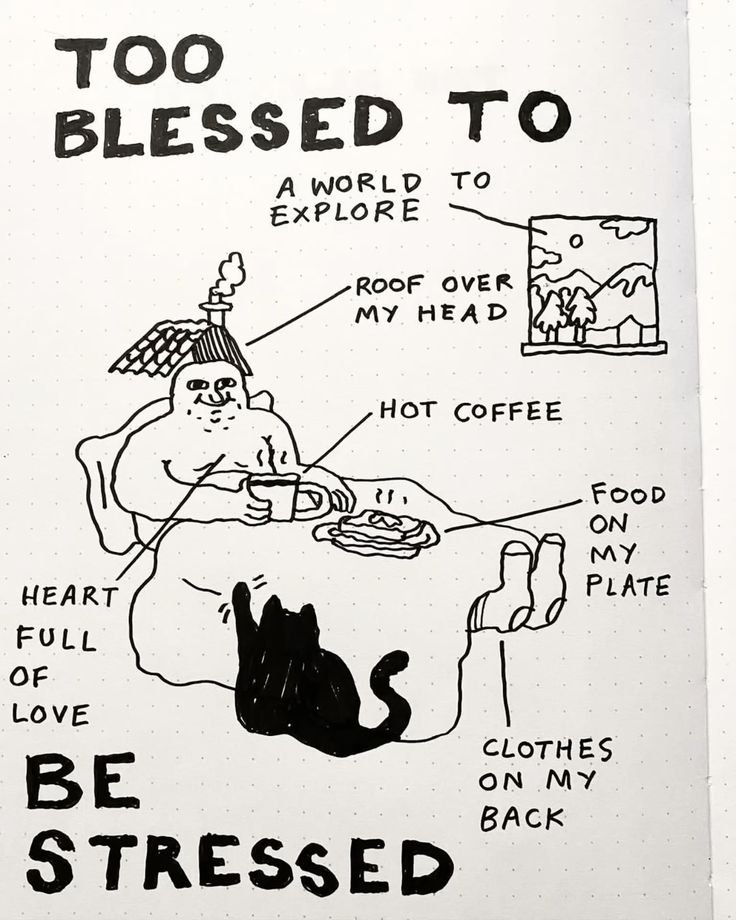 TOO
BLESSED TO
A WORLD TO
EXPLORE
ROOF OVER
MY HEAD
HOT COFFEE
FOOD
ON
MY
PLATE
HEART
FULL
OF
LOVE
CLOTHES
ON MY
BACK
BE
STRESSED